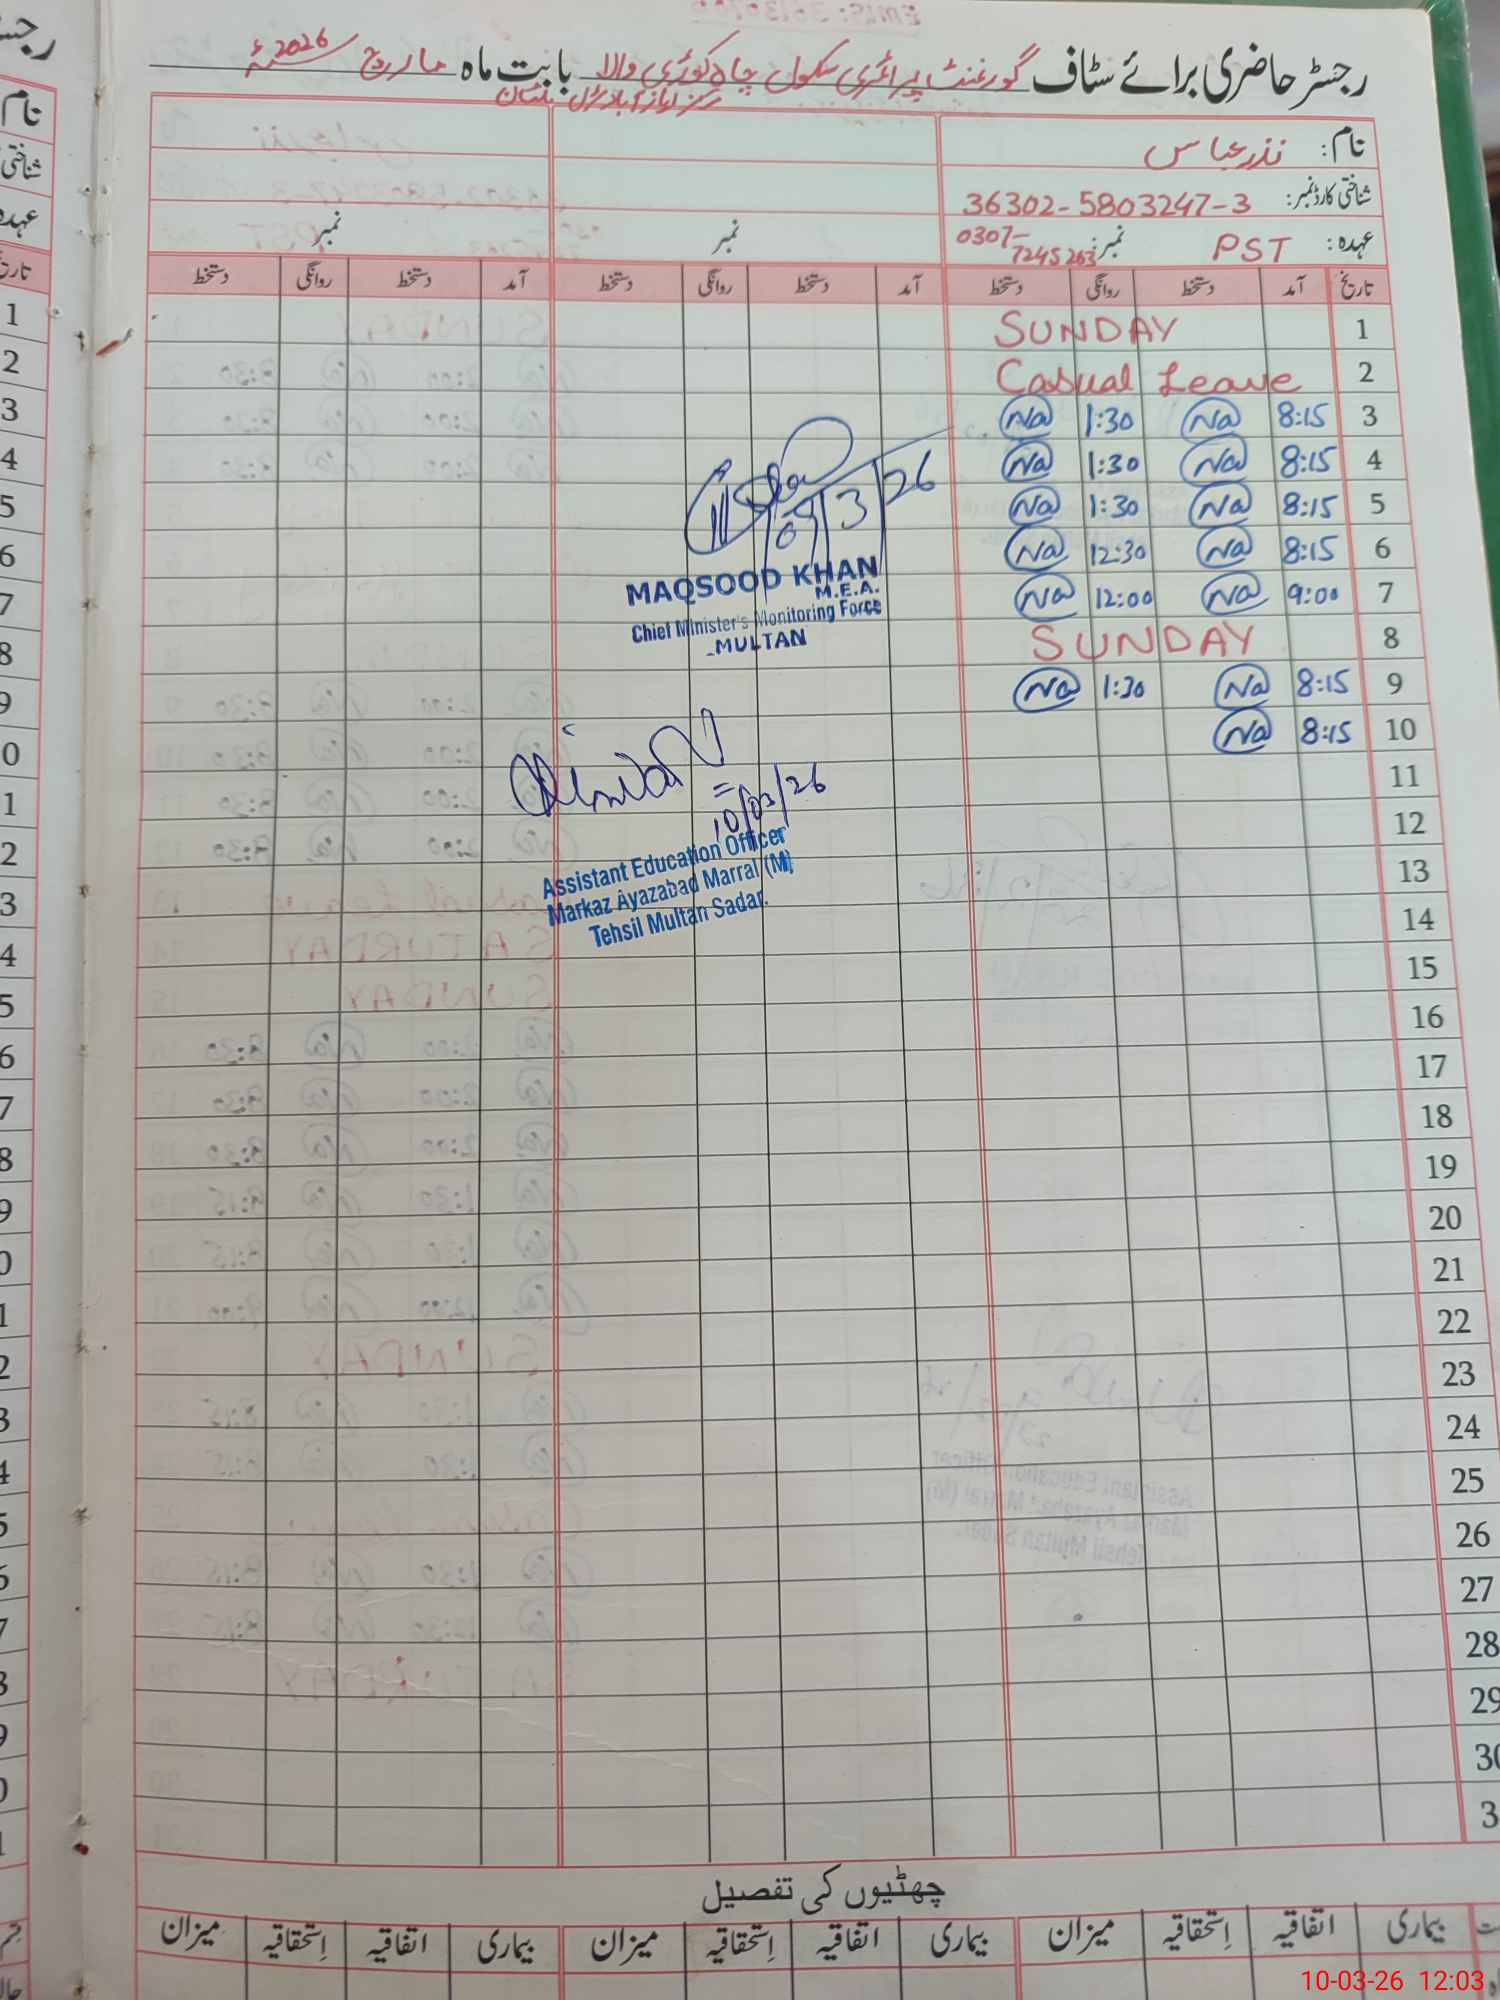 رجسٹر حاضری برائے سٹاف گورنمنٹ پرائمری سکول چاہ کوڑی والا بابت ماہ مارچ 2026ء
مرکز ایاز آباد مڑل ملتان
نام: نذر عباس
شناختی کارڈ نمبر: 36302-5803247-3
عہدہ: PST نمبر: 0307-7245263 نمبر نمبر
تاریخ آمد دستخط روانگی دستخط آمد دستخط روانگی دستخط آمد دستخط روانگی دستخط
1 SUNDAY
2 Casual Leave
3 8:15 Na 1:30 Na
4 8:15 Na 1:30 Na
5 8:15 Na 1:30 Na
6 8:15 Na 12:30 Na
7 9:00 Na 12:00 Na
8 SUNDAY
9 8:15 Na 1:30 Na
10 8:15 Na
11
12
13
14
15
16
17
18
19
20
21
22
23
24
25
26
27
28
29
30
3
09/3/26
MAQSOOD KHAN
M.E.A.
Chief Minister's Monitoring Force
MULTAN
10/03/26
Assistant Education Officer
Markaz Ayazabad Marral (M)
Tehsil Multan Sadar.
چھٹیوں کی تفصیل
بیماری اتفاقیہ اِستحقاقیہ میزان بیماری اتفاقیہ اِستحقاقیہ میزان بیماری اتفاقیہ اِستحقاقیہ میزان
10-03-26 12:03